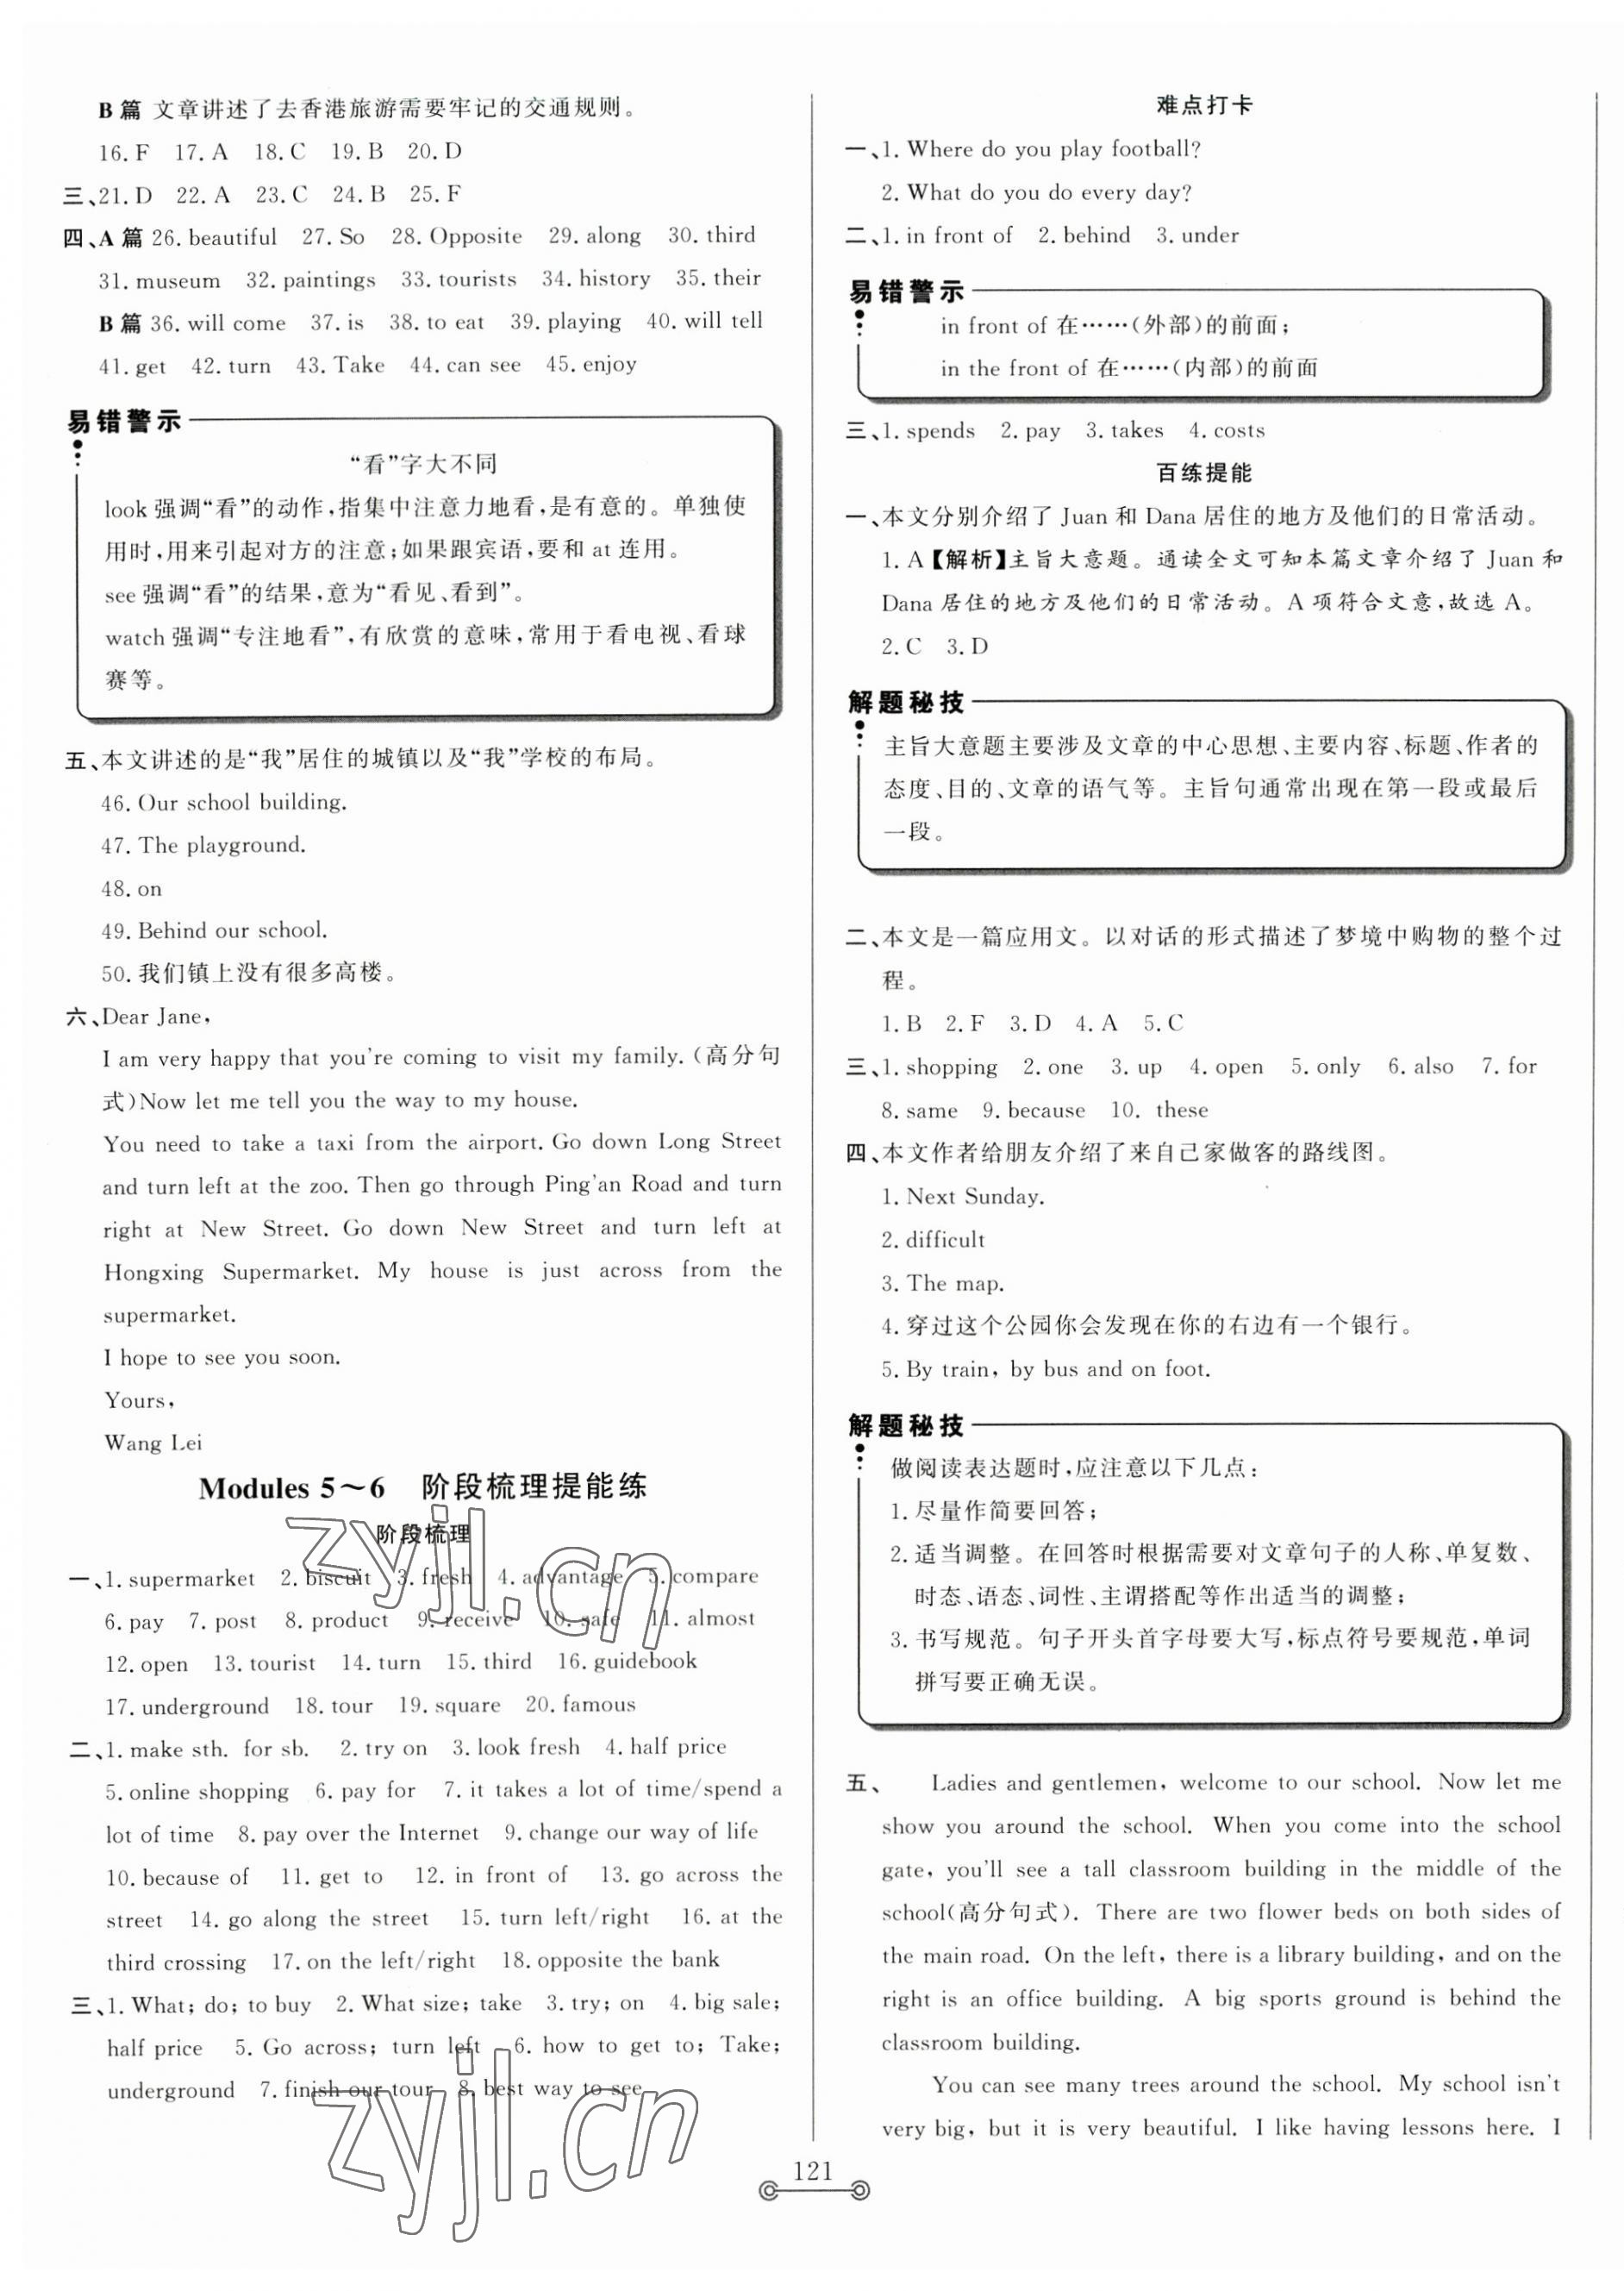 B篇 文章讲述了去香港旅游需要牢记的交通规则。
16. F 17. A 18. C 19. B 20. D
三、21. D 22. A 23. C 24. B 25. F
四、A篇 26. beautiful 27. So 28. Opposite 29. along 30. third
31. museum 32. paintings 33. tourists 34. history 35. their
B篇 36. will come 37. is 38. to eat 39. playing 40. will tell
41. get 42. turn 43. Take 44. can see 45. enjoy
易错警示
“看”字大不同
look强调“看”的动作,指集中注意力地看,是有意的。单独使
用时,用来引起对方的注意;如果跟宾语,要和at连用。
see强调“看”的结果,意为“看见、看到”。
watch强调“专注地看”,有欣赏的意味,常用于看电视、看球
赛等。
五、本文讲述的是“我”居住的城镇以及“我”学校的布局。
46. Our school building.
47. The playground.
48. on
49. Behind our school.
50. 我们镇上没有很多高楼。
六、Dear Jane,
I am very happy that you're coming to visit my family.(高分句
式)Now let me tell you the way to my house.
You need to take a taxi from the airport. Go down Long Street
and turn left at the zoo. Then go through Ping'an Road and turn
right at New Street. Go down New Street and turn left at
Hongxing Supermarket. My house is just across from the
supermarket.
I hope to see you soon.
Yours,
Wang Lei
Modules 5～6 阶段梳理提能练
阶段梳理
一、1. supermarket 2. biscuit 3. fresh 4. advantage 5. compare
6. pay 7. post 8. product 9. receive 10. safe 11. almost
12. open 13. tourist 14. turn 15. third 16. guidebook
17. underground 18. tour 19. square 20. famous
二、1. make sth. for sb. 2. try on 3. look fresh 4. half price
5. online shopping 6. pay for 7. it takes a lot of time/spend a
lot of time 8. pay over the Internet 9. change our way of life
10. because of 11. get to 12. in front of 13. go across the
street 14. go along the street 15. turn left/right 16. at the
third crossing 17. on the left/right 18. opposite the bank
三、1. What; do; to buy 2. What size; take 3. try; on 4. big sale;
half price 5. Go across; turn left 6. how to get to; Take;
underground 7. finish our tour 8. best way to see
难点打卡
一、1. Where do you play football?
2. What do you do every day?
二、1. in front of 2. behind 3. under
易错警示
in front of 在……(外部)的前面;
in the front of 在……(内部)的前面
三、1. spends 2. pay 3. takes 4. costs
百练提能
一、本文分别介绍了Juan和Dana居住的地方及他们的日常活动。
1. A【解析】主旨大意题。通读全文可知本篇文章介绍了Juan和
Dana居住的地方及他们的日常活动。A项符合文意,故选A。
2. C 3. D
解题秘技
主旨大意题主要涉及文章的中心思想、主要内容、标题、作者的
态度、目的、文章的语气等。主旨句通常出现在第一段或最后
一段。
二、本文是一篇应用文。以对话的形式描述了梦境中购物的整个过
程。
1. B 2. F 3. D 4. A 5. C
三、1. shopping 2. one 3. up 4. open 5. only 6. also 7. for
8. same 9. because 10. these
四、本文作者给朋友介绍了来自己家做客的路线图。
1. Next Sunday.
2. difficult
3. The map.
4. 穿过这个公园你会发现在你的右边有一个银行。
5. By train, by bus and on foot.
解题秘技
做阅读表达题时,应注意以下几点:
1. 尽量作简要回答;
2. 适当调整。在回答时根据需要对文章句子的人称、单复数、
时态、语态、词性、主谓搭配等作出适当的调整;
3. 书写规范。句子开头首字母要大写,标点符号要规范,单词
拼写要正确无误。
五、 Ladies and gentlemen, welcome to our school. Now let me
show you around the school. When you come into the school
gate, you'll see a tall classroom building in the middle of the
school(高分句式). There are two flower beds on both sides of
the main road. On the left, there is a library building, and on the
right is an office building. A big sports ground is behind the
classroom building.
You can see many trees around the school. My school isn't
very big, but it is very beautiful. I like having lessons here. I
121
zyjl.cn
zyjl.cn